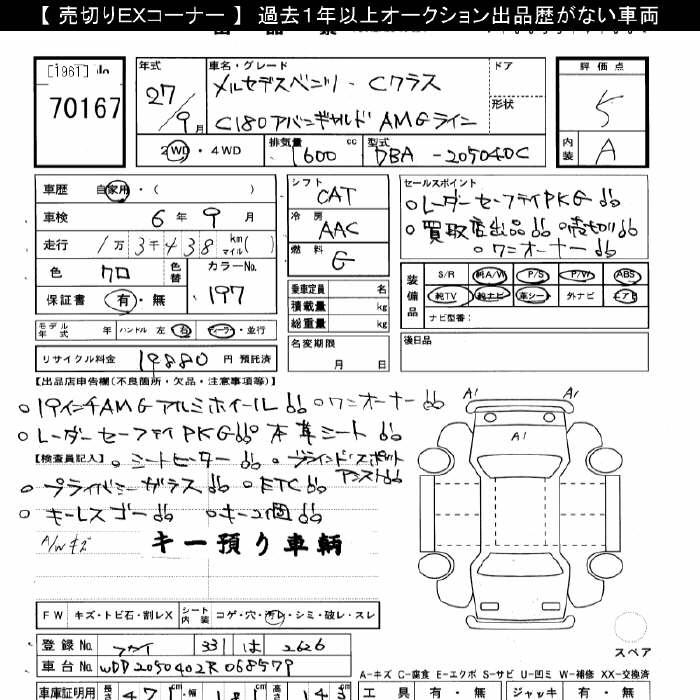 【 売切りEXコーナー 】 過去1年以上オークション出品歴がない車両
70167
年式
27/9月
車名・グレード
メルセデスベンツ - Cクラス
C180アバンギャルド AMGライン
ドア
形状
評価点
5
内装
A
2WD・4WD
排気量
1600 cc
型式
DBA - 205040C
車歴
自家用・( )
車検
6年 9月
走行
1万3千438 km マイル( )
色
クロ
色替
カラーNo.
197
保証書
有・無
シフト
CAT
冷房
AAC
燃料
G
乗車定員 名
積載量 kg
総重量 kg
セールスポイント
○レーダーセーフティPKG
○買取店出品 ○売切り
○ワンオーナー
装備品
S/R
純A/W
P/S
P/W
ABS
純TV
純ナビ
革シート
外ナビ
エアB
ナビ型番:
モデル年式 年
ハンドル 左 右
ディーラー・並行
名変期限
月 日
後日品
リサイクル料金 19880 円 預託済
【出品店申告欄(不良箇所・欠品・注意事項等)】
○19インチAMGアルミホイール ○ワンオーナー
○レーダーセーフティPKG ○本革シート
【検査員記入】
○シートヒーター ○ブラインドスポットアシスト
○プライバシーガラス ○ETC
○キーレスゴー ○キー2個
A/Wキズ
キー預り車輌
A1
A1
A1
FW
キズ・トビ石・割レX
シート内装
コゲ・穴・汚レ・シミ・破レ・スレ
登録No.
331 は 2626
車台No.
WDD2050402R068579
スペア
A-キズ C-腐食 E-エクボ S-サビ U-凹ミ W-補修 XX-交換済
車庫証明用
工具 有・無
ジャッキ 有・無